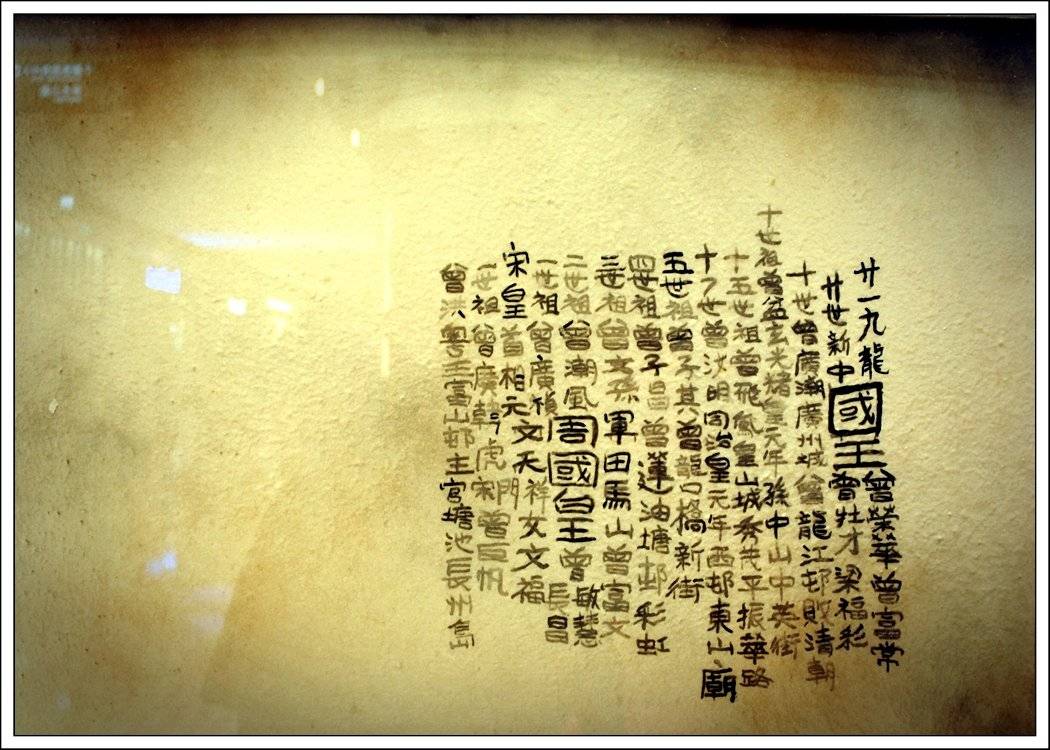 廿一九龍國王曾榮華曾富常
廿世新中國王曾灶才梁福彩
十世曾廣潮廣州城曾龍江邨敗清朝
世祖曾益玄光緒皇元年孫中山中英街
十五世祖曾飛鳳皇山城秀茂平振華路
世曾汝明同治皇元年西邨東山廟
五世祖曾子其曾龍口橋新街
四世祖曾子昌曾蓮油塘邨彩虹
三世祖曾文孫軍田馬山曾富文
二世祖曾潮風周國皇曾敏慧
一世祖曾廣代天祥文文福長昌
宋皇首相元文門
一世祖曾廣乾号虎宋曾長帆
曾洪粵王富山邨主宮塘池長州島